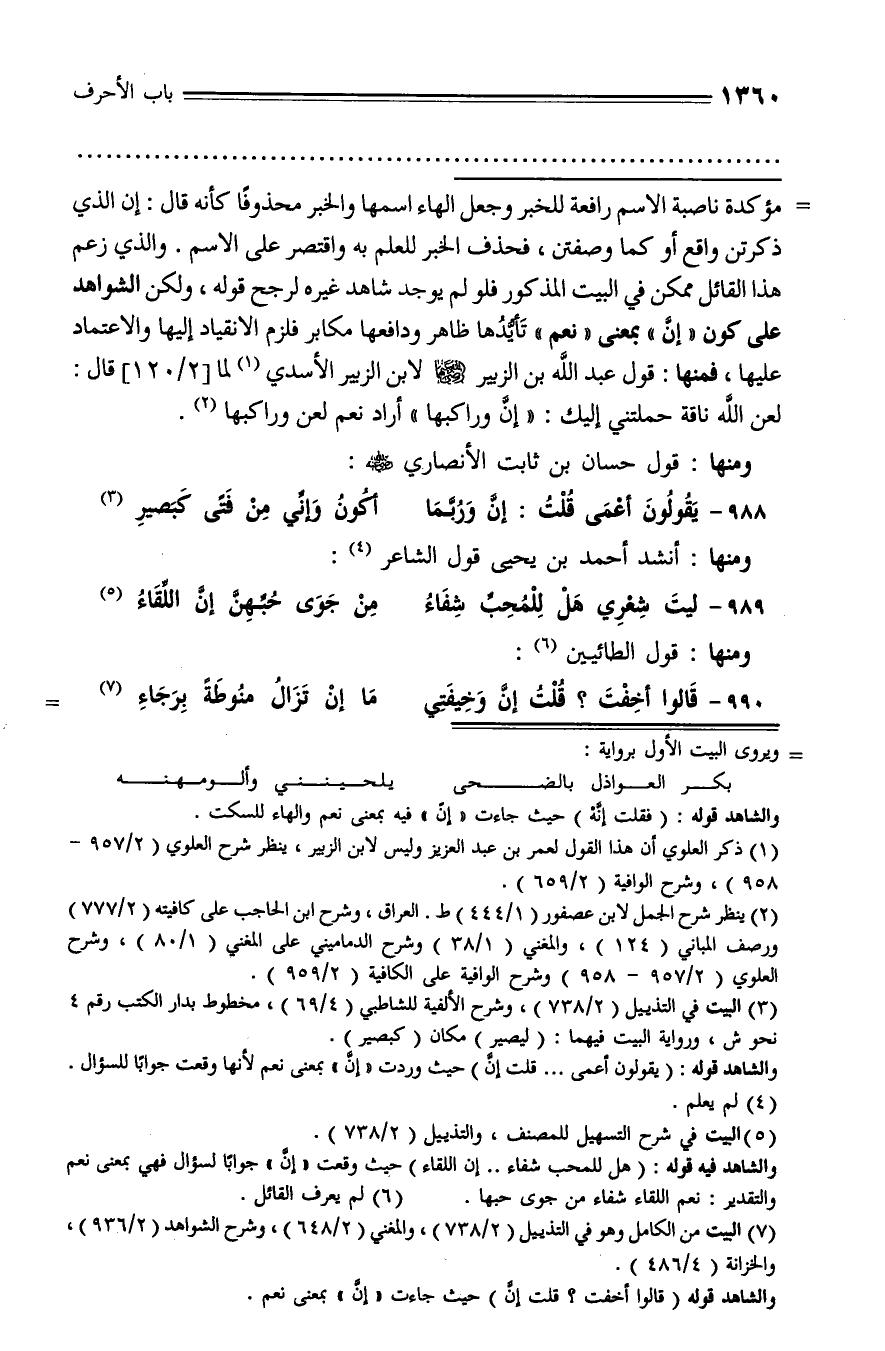 ١٣٦٠ باب الأحرف
= مؤكدة ناصبة الاسم رافعة للخبر وجعل الهاء اسمها والخبر محذوفًا كأنه قال : إن الذي
ذكرتن واقع أو كما وصفتن ، فحذف الخبر للعلم به واقتصر على الاسم . والذي زعم
هذا القائل ممكن في البيت المذكور فلو لم يوجد شاهد غيره لرجح قوله ، ولكن الشواهد
على كون « إنَّ » بمعنى « نعم » تَأَيُّدُها ظاهر ودافعها مكابر فلزم الانقياد إليها والاعتماد
عليها ، فمنها : قول عبد اللَّه بن الزبير ﵄ لابن الزبير الأسدي (١) لما [١٢٠/٢] قال :
لعن اللَّه ناقة حملتني إليك : « إنَّ وراكبها » أراد نعم لعن وراكبها (٢) .
ومنها : قول حسان بن ثابت الأنصاري ﵁ :
٩٨٨ - يَقُولُونَ أعْمَى قُلْتُ : إنَّ وَرُبَّمَا أكُونُ وَإنِّي مِنْ فَتًى كَبَصيرِ (٣)
ومنها : أنشد أحمد بن يحيى قول الشاعر (٤) :
٩٨٩ - ليتَ شِعْرِي هَلْ لِلْمُحِبِّ شِفَاءُ مِنْ جَوَى حُبِّهِنَّ إنَّ اللِّقَاءُ (٥)
ومنها : قول الطائيين (٦) :
٩٩٠ - قَالوا أخِفْتَ ؟ قُلْتُ إنَّ وَخِيفَتِي مَا إنْ تَزَالُ منُوطَةً بِرَجَاءِ (٧) =
= ويروى البيت الأول برواية :
بكـر العـواذل بالضـحى يلحيـنـني وألـومهنـه
والشاهد قوله : ( فقلت إنَّهْ ) حيث جاءت « إنّ » فيه بمعنى نعم والهاء للسكت .
(١) ذكر العلوي أن هذا القول لعمر بن عبد العزيز وليس لابن الزبير ، ينظر شرح العلوي ( ٩٥٧/٢ -
٩٥٨ ) ، وشرح الوافية ( ٦٥٩/٢ ) .
(٢) ينظر شرح الجمل لابن عصفور ( ٤٤٤/١ ) ط . العراق ، وشرح ابن الحاجب على كافيته ( ٧٧٧/٢ )
ورصف المباني ( ١٢٤ ) ، والمغني ( ٣٨/١ ) وشرح الدماميني على المغني ( ٨٠/١ ) ، وشرح
العلوي ( ٩٥٧/٢ - ٩٥٨ ) وشرح الوافية على الكافية ( ٩٥٩/٢ ) .
(٣) البيت في التذييل ( ٧٣٨/٢ ) ، وشرح الألفية للشاطبي ( ٦٩/٤ ) ، مخطوط بدار الكتب رقم ٤
نحو ش ، ورواية البيت فيهما : ( لبصير ) مكان ( كبصير ) .
والشاهد قوله : ( يقولون أعمى ... قلت إنَّ ) حيث وردت « إنَّ » بمعنى نعم لأنها وقعت جوابًا للسؤال .
(٤) لم يعلم .
(٥) البيت في شرح التسهيل للمصنف ، والتذييل ( ٧٣٨/٢ ) .
والشاهد فيه قوله : ( هل للمحب شفاء .. إن اللقاء ) حيث وقعت « إنَّ » جوابًا لسؤال فهي بمعنى نعم
والتقدير : نعم اللقاء شفاء من جوى حبها . (٦) لم يعرف القائل .
(٧) البيت من الكامل وهو في التذييل ( ٧٣٨/٢ ) ، والمغني ( ٦٤٨/٢ ) ، وشرح الشواهد ( ٩٣٦/٢ ) ،
والخزانة ( ٤٨٦/٤ ) .
والشاهد قوله ( قالوا أخفت ؟ قلت إنَّ ) حيث جاءت « إنَّ » بمعنى نعم .